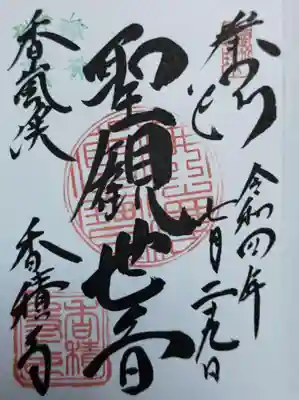 令和四年
七月二十九日
聖観世音
香嵐渓
香積寺